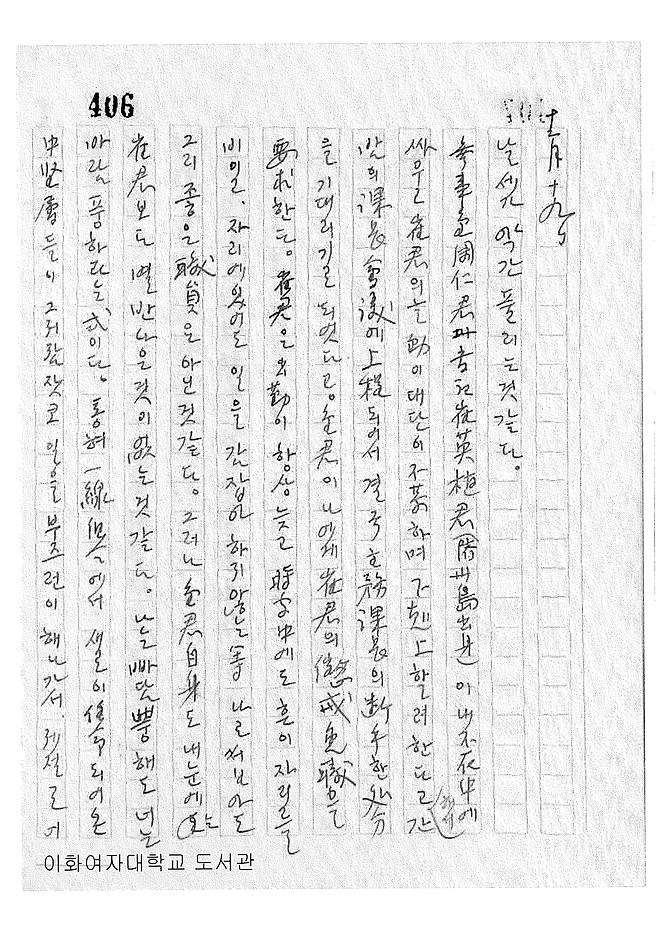 406
十二月 十九日
날세가 약간 풀리는것 같다.
參事 金周仁君과 書記 崔英植君(濟州島出身)이 내 不在中에
싸우고 崔君의 言動이 대단이 不恭하며 下剋上 할려한다고 간
의 課長會議에 上程되어서 결국 課長의 断乎한 処分
을 기대리기로 되엿다고. 金君이 나에게 崔君의 懲戒免職을
要求한다. 崔君은 出勤이 항상 늦고 時間中에도 흔이 자리를
비일. 자리에 있어도 일을 갑잡아 하지 않는 等 나로써 보아도
그리 좋은 職員은 아닌것 같다. 그러나 金君自身도 내눈에는
崔君보도 별반 나은것이 없는것 같다. 나는 빠담뿡해도 너는
바람풍하라는 式이다. 통혀 一線 에서 새로이 되어온
中堅層들이 그저 잠잣코 일을 부즈런이 해나가서. 제절로 머
이화여자대학교 도서관